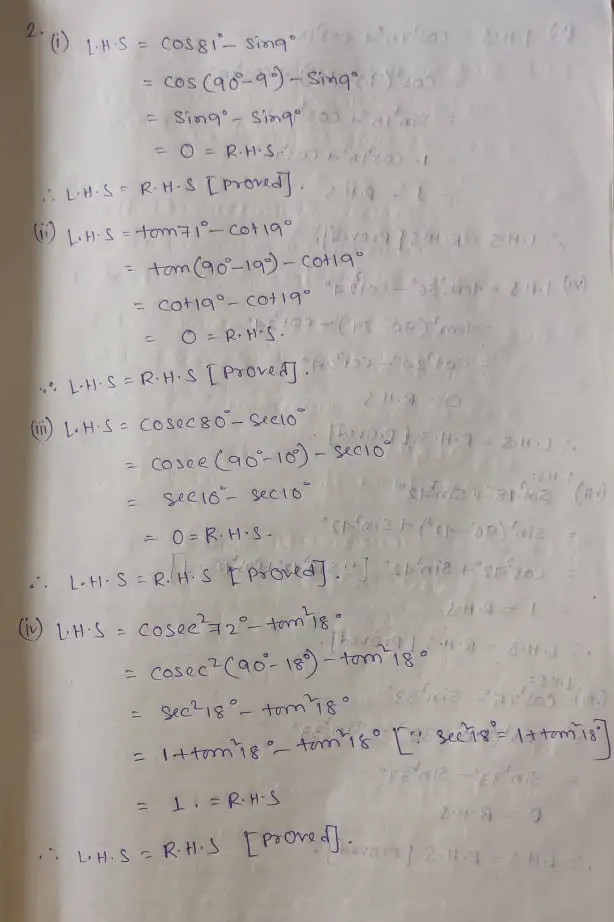 2. (i) L.H.S = cos81° - sin9°
= cos(90°-9°) - sin9°
= sin9° - sin9°
= 0 = R.H.S
∴ L.H.S = R.H.S [Proved].
(ii) L.H.S = tan71° - cot19°
= tan(90°-19°) - cot19°
= cot19° - cot19°
= 0 = R.H.S.
∵ L.H.S = R.H.S [Proved].
(iii) L.H.S = cosec80° - sec10°
= cosec(90°-10°) - sec10°
= sec10° - sec10°
= 0 = R.H.S.
∴ L.H.S = R.H.S [Proved].
(iv) L.H.S = cosec²72° - tan²18°
= cosec²(90°-18°) - tan²18°
= sec²18° - tan²18°
= 1+tan²18° - tan²18° [∵ sec²18° = 1+tan²18°]
= 1. = R.H.S
∴ L.H.S = R.H.S [Proved].